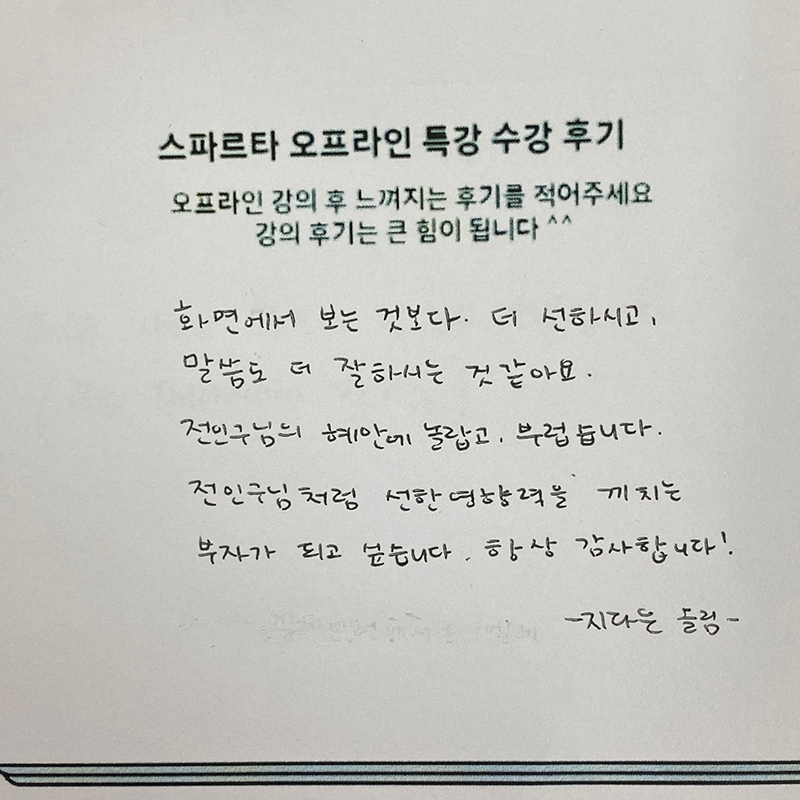 스파르타 오프라인 특강 수강 후기
오프라인 강의 후 느껴지는 후기를 적어주세요
강의 후기는 큰 힘이 됩니다 ^^
화면에서 보는 것보다. 더 선하시고,
말씀도 더 잘하시는 것 같아요.
전인구님의 혜안에 놀랍고, 부럽습니다.
전인구님처럼 선한영향력을 끼치는
부자가 되고 싶습니다. 항상 감사합니다!
-지다운 드림-